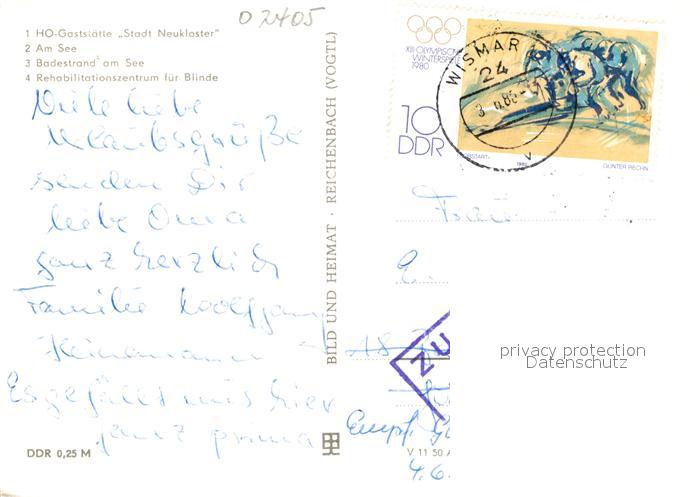 02405
1 HO-Gaststätte „Stadt Neukloster"
2 Am See
3 Badestrand am See
4 Rehabilitationszentrum für Blinde
Viele liebe
Urlaubsgrüße
senden Dir
liebe Oma
ganz herzlich
Familie Wolfgang
Heinemann
Es gefällt uns hier
ganz prima
DDR 0,25 M
BILD UND HEIMAT · REICHENBACH (VOGTL)
XIII OLYMPISCHE
WINTERSPIELE
1980
10
DDR
GÜNTER RECHN
1980
WISMAR
24
v
Frau
ZU
Empf.
4.6.
V 11 50 A
privacy protection
Datenschutz